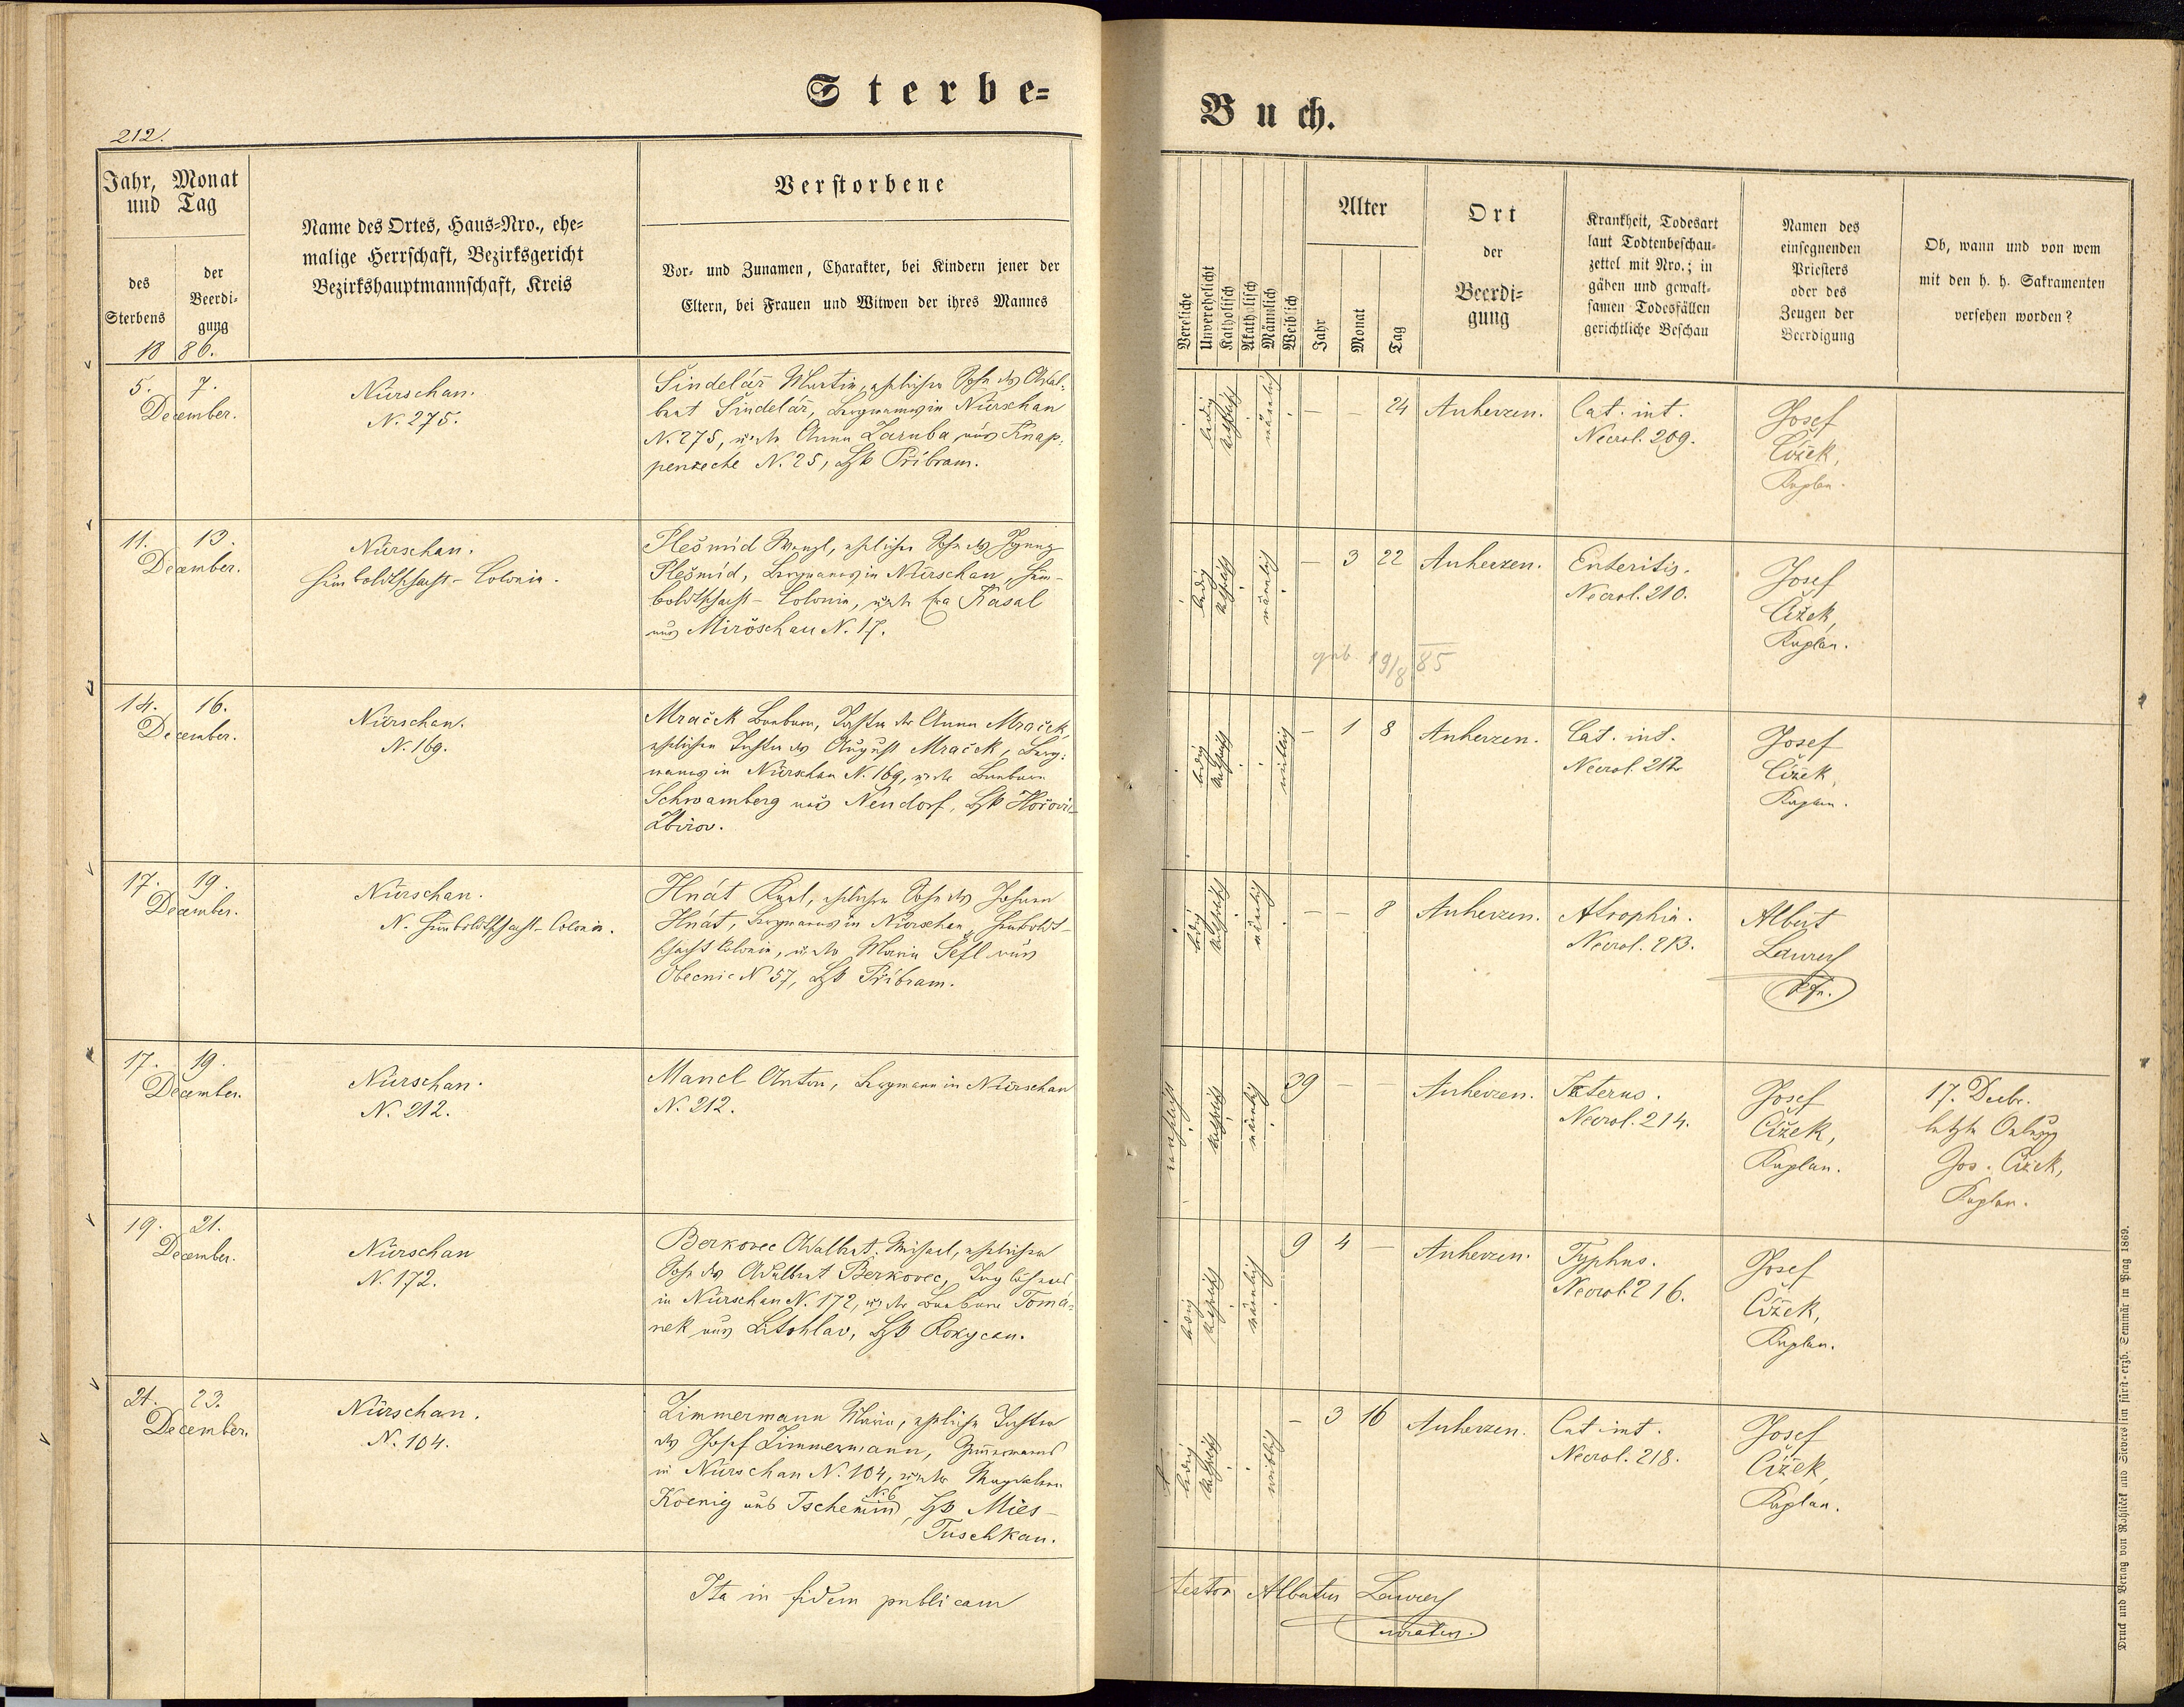 Sterbe=
Buch.
212.
Jahr, Monat
und Tag
des
Sterbens
der
Beerdi-
gung
1886.
Name des Ortes, Haus=Nro., ehe=
malige Herrschaft, Bezirksgericht
Bezirkshauptmannschaft, Kreis
Verstorbene
Vor= und Zunamen, Charakter, bei Kindern jener der
Eltern, bei Frauen und Witwen der ihres Mannes
Vereliche
Unverehelicht
Katholisch
Akatholisch
Männlich
Weiblich
Alter
Jahr
Monat
Tag
Ort
der
Beerdi=
gung
Krankheit, Todesart
laut Todtenbeschau=
zettel mit Nro.; in
gähen und gewalt=
samen Todesfällen
gerichtliche Beschau
Namen des
einsegnenden
Priesters
oder des
Zeugen der
Beerdigung
Ob, wann und von wem
mit den h. h. Sakramenten
versehen worden?
5. 7.
December.
Nürschan.
N. 275.
Šindelář Martin, ehelicher Sohn des Adal-
bert Šindelář, Bergmanns in Nürschan
N. 275, u. der Anna Zaruba aus Knap-
penzeche N. 25, Bzk Příbram.
ledig
katholisch
männlich
— — 24
Auherzen.
Cat. int.
Necrol. 209.
Josef
Čížek,
Kaplan.
11. 13.
December.
Nürschan.
Humboldtschacht-Colonie.
Plešmíd Wenzl, ehelicher Sohn des Ignaz
Plešmíd, Bergmanns in Nürschan, Hum-
boldtschacht-Colonie, u. der Eva Kasal
aus Miröschau N. 17.
ledig
katholisch
männlich
— 3 22
Auherzen.
Enteritis.
Necrol. 210.
Josef
Čížek,
Kaplan.
geb. 19/8 85
14. 16.
December.
Nürschan.
N. 169.
Mraček Barbara, Tochter der Anna Mraček,
ehelichen Tochter des August Mraček, Berg-
manns in Nürschan N. 169, u. der Barbara
Schwamberg aus Neudorf, Bzk Hořovi-
Zbirov.
ledig
katholisch
weiblich
— 1 8
Auherzen.
Cat. int.
Necrol. 212
Josef
Čížek
Kaplan.
17. 19.
December.
Nürschan.
N. Humboldtschacht-Colonie.
Hnát Karl, ehelicher Sohn des Johann
Hnát, Bergmanns in Nürschan, Humboldt-
schacht Colonie, u. der Maria Šefl aus
Obecnic N 57, Bzk Příbram.
ledig
katholisch
männlich
— — 8
Auherzen.
Atrophia.
Necrol. 213.
Albert
Pfr.
17. 19.
December.
Nürschan.
N. 212.
Mancl Anton, Bergmann in Nürschan
N. 212.
verehelicht
katholisch
männlich
39 — —
Auherzen.
Icterus.
Necrol. 214.
Josef
Čížek,
Kaplan.
17. Decbr.
letzte Oelung
Jos. Čížek,
Kaplan.
19. 21.
December.
Nürschan
N. 172.
Berkovec Adalbert Michael, ehelicher
Sohn des Adalbert Berkovec, Taglöhners
in Nürschan N. 172, u. der Barbara Tomá-
nek aus Litohlav, Bzk Rokycan.
ledig
katholisch
männlich
9 4 —
Auherzen.
Typhus.
Necrol. 216.
Josef
Čížek,
Kaplan.
21. 23.
December.
Nürschan.
N. 104.
Zimmermann Maria, eheliche Tochter
des Josef Zimmermann, Zimmermanns
in Nürschan N. 104, u. der Magdalena
Koenig aus Tschemin N. 6, Bzk Mies-
Tuschkau.
ledig
katholisch
weiblich
— 3 16
Auherzen.
Cat. int.
Necrol. 218.
Josef
Čížek,
Kaplan.
Ita in fidem publicam
testor Albertus
curatus.
Druck und Verlag von Rohlicek und Sievers im fürst-erzb. Seminär in Prag 1869.